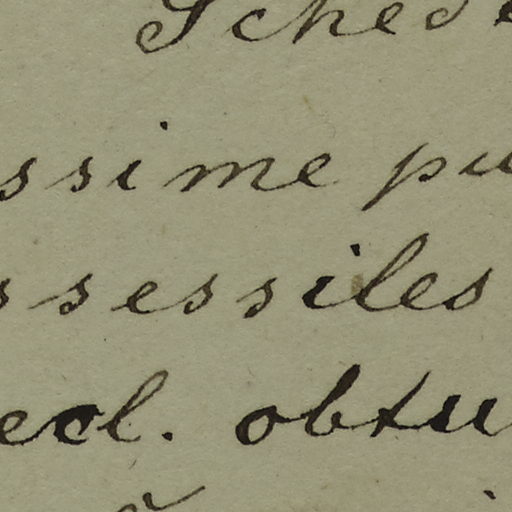 Sched
ssime pu
s sessiles
ecl. obtu